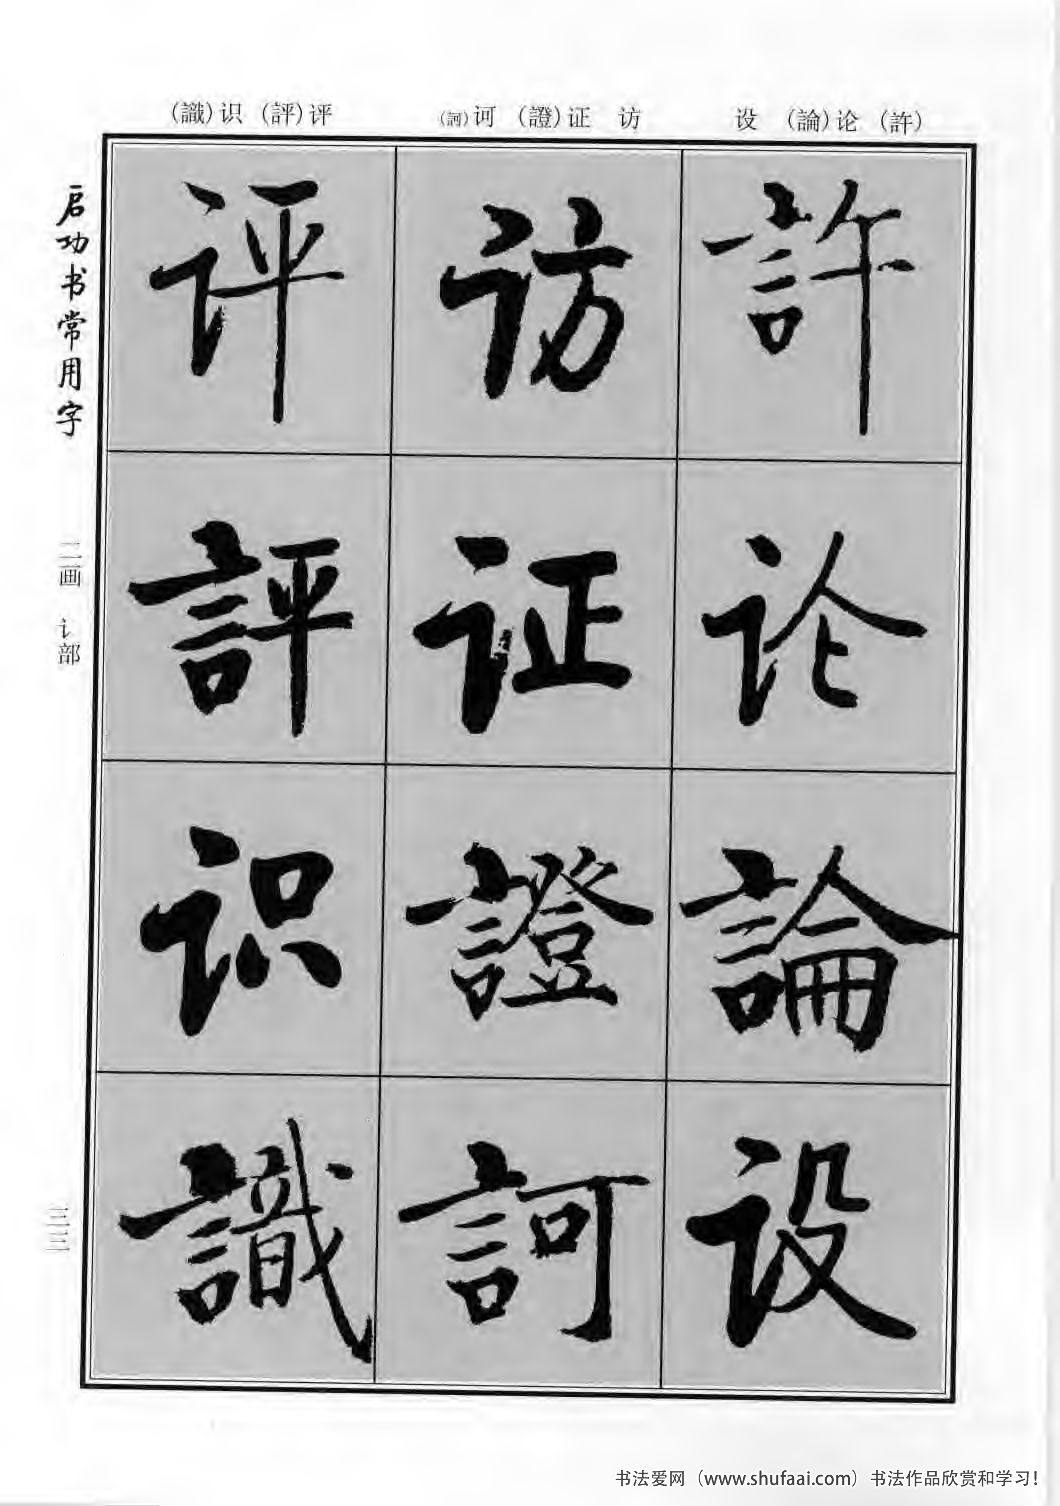 (識)识 (評)评
(訶)诃 (證)证 访
设 (論)论 (許)
启功书常用字
二画 讠部
三三
許
论
論
设
访
证
證
訶
评
評
识
識
书法爱网（www.shufaai.com）书法作品欣赏和学习!